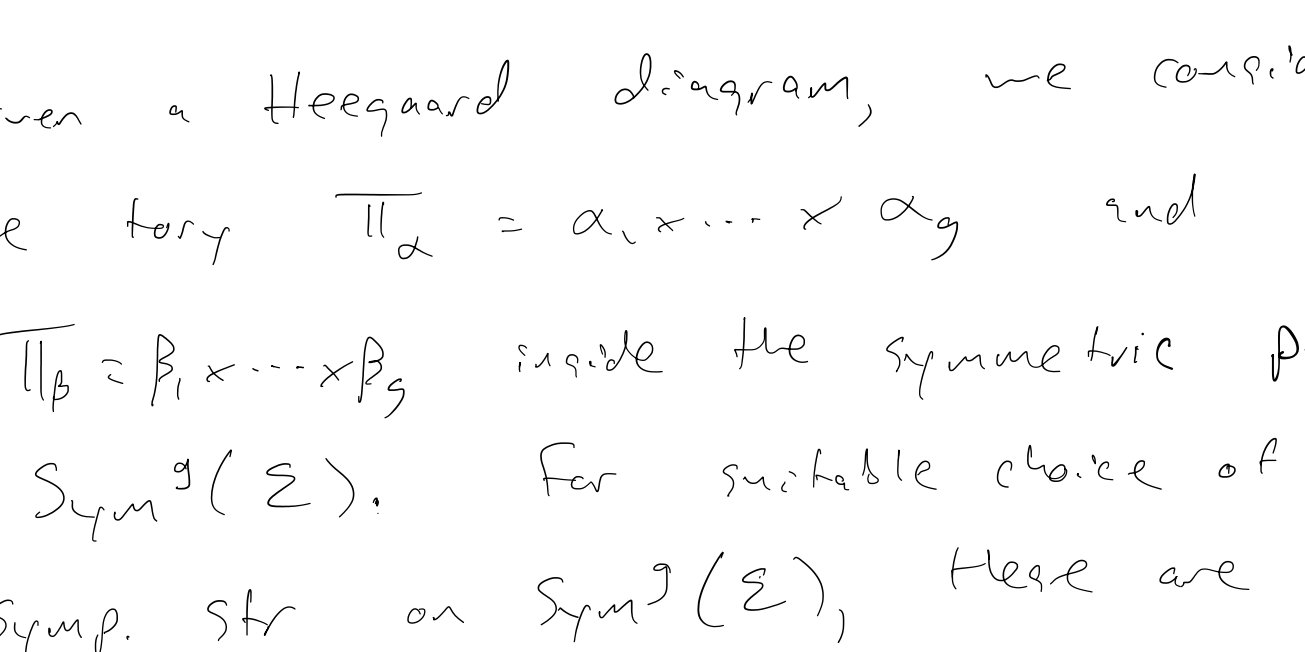 ven a Heegaard diagram, we consid
e tory 𝕋_α = α₁ × ... × α_g and
𝕋_β = β₁ × ... × β_g inside the symmetric p
Sym^g(Σ). For suitable choice of
symp. str on Sym^g(Σ), these are